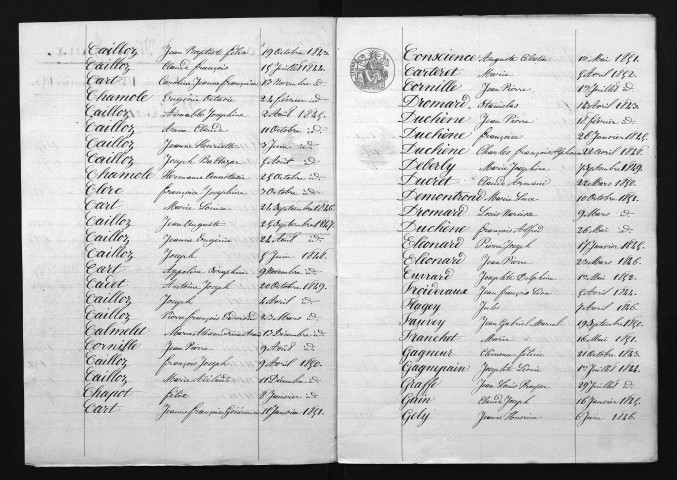 Cailloz Jean Baptiste Félix 19 Octobre 1843.
Cailloz Claude François 15 Juillet 1844.
Cart Caroline Jeanne Françoise 13 Novembre id
Chamole Eugénie Octavie 24 février id
Cailloz Aimable Josephine 2 Avril 1845.
Cailloz Anne Claude 11 Octobre id
Cailloz Jeanne Henriette 3 Juin id
Cailloz Joseph Balthazar 5 Août id
Chamole Hermance Anastasie 25 Octobre id
Clerc françoise Josephine 3 Octobre id
Cart Marie Louise 24 Septembre 1846.
Cailloz Jean Auguste 25 Septembre 1847.
Cailloz Jeanne Eugénie 24 Août id
Cailloz Joseph 5 Juin 1848.
Cart Appoline Séraphine 9 Novembre id
Cadet Antoine Joseph 20 Octobre 1849.
Cailloz Joseph 4 Avril id
Cailloz Pierre françois 23 Mars id
Calmelet Marie 13 Décembre id
Cornille Jean Pierre 9 Avril id
Cailloz françois Joseph 9 Avril 1850.
Cailloz Marie 11 Décembre id
Chapot félix 8 Janvier id
Cart Jeanne françoise 11 Janvier 1851.
Conscience Auguste 10 Mai 1851.
Carteret Marie 5 Avril 1852.
Cornille Jean Pierre 1er Juillet id
Dromard Stanislas 14 Avril 1843.
Duchêne Jean Pierre 18 février id
Duchêne françoise 26 Janvier 1845.
Duchêne Charles François Alphonse 22 Avril 1848.
Deberly Marie Josephine Septembre 1849.
Ducret Claude Armand 22 Mars 1850.
Demontrond Marie Luce 10 Octobre 1851.
Dromard Louis Narcisse 9 Mars id
Duchêne françois Alfred 26 Mai id
Elionard Pierre Joseph 17 Janvier 1845.
Elionard Jean Pierre 23 Mars 1846.
Euvrard Josephte Delphine 1er Mai 1852.
Froidevaux Jean françois Léon 5 Avril 1844.
Flagey Jules Avril 1846.
Fauvey Jean Gabriel Marcel 19 Septembre 1850.
Franchet Marie 16 Mai 1851.
Gagneur Clémence félicie 21 Octobre 1843.
Gagnepain Josephte Louise 1er Juillet 1844.
Graffe Jean Louis 29 Juillet id
Guin Claude Joseph 16 Janvier 1845.
Gely Jeanne 6 Juin 1846.